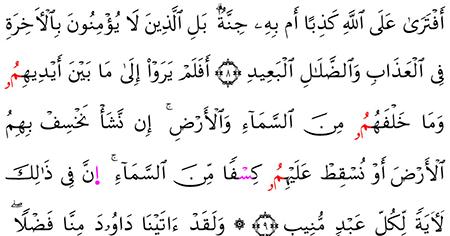 أَفْتَرَىٰ عَلَى ٱللَّهِ كَذِبًا أَم بِهِۦ جِنَّةٌۢ ۗ بَلِ ٱلَّذِينَ لَا يُؤْمِنُونَ بِٱلْأَخِرَةِ
فِى ٱلْعَذَابِ وَٱلضَّلَـٰلِ ٱلْبَعِيدِ ۝٨ أَفَلَمْ يَرَوْا۟ إِلَىٰ مَا بَيْنَ أَيْدِيهِمُۥ
وَمَا خَلْفَهُمُۥ مِنَ ٱلسَّمَآءِ وَٱلْأَرْضِ ۚ إِن نَّشَأْ نَخْسِفْ بِهِمُ
ٱلْأَرْضَ أَوْ نُسْقِطْ عَلَيْهِمُۥ كِسْفًا مِّنَ ٱلسَّمَآءِ ۚ إِنَّ فِى ذَٰلِكَ
لَأَيَةً لِّكُلِّ عَبْدٍ مُّنِيبٍ ۝٩ ۞ وَلَقَدْ ءَاتَيْنَا دَاوُۥدَ مِنَّا فَضْلًا ۖ